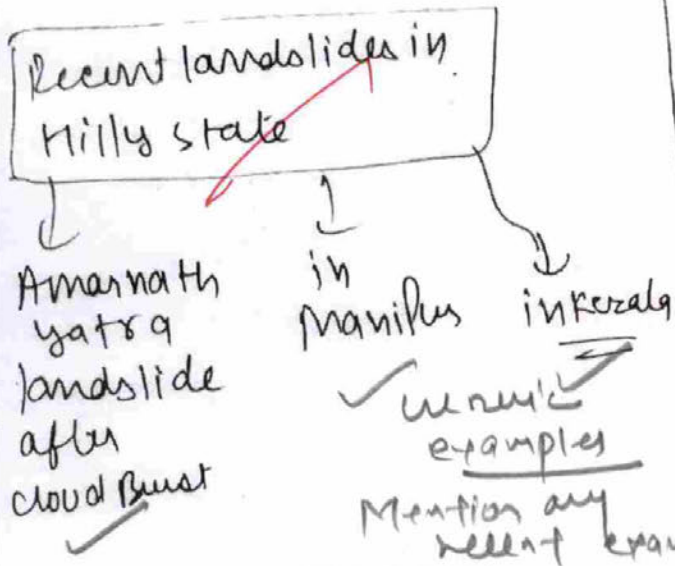 Recent landslides in
Hilly state
Amarnath
yatra
landslide
after
cloud Burst
in
Manipur
in Kerala
examples
Mention any
recent exam